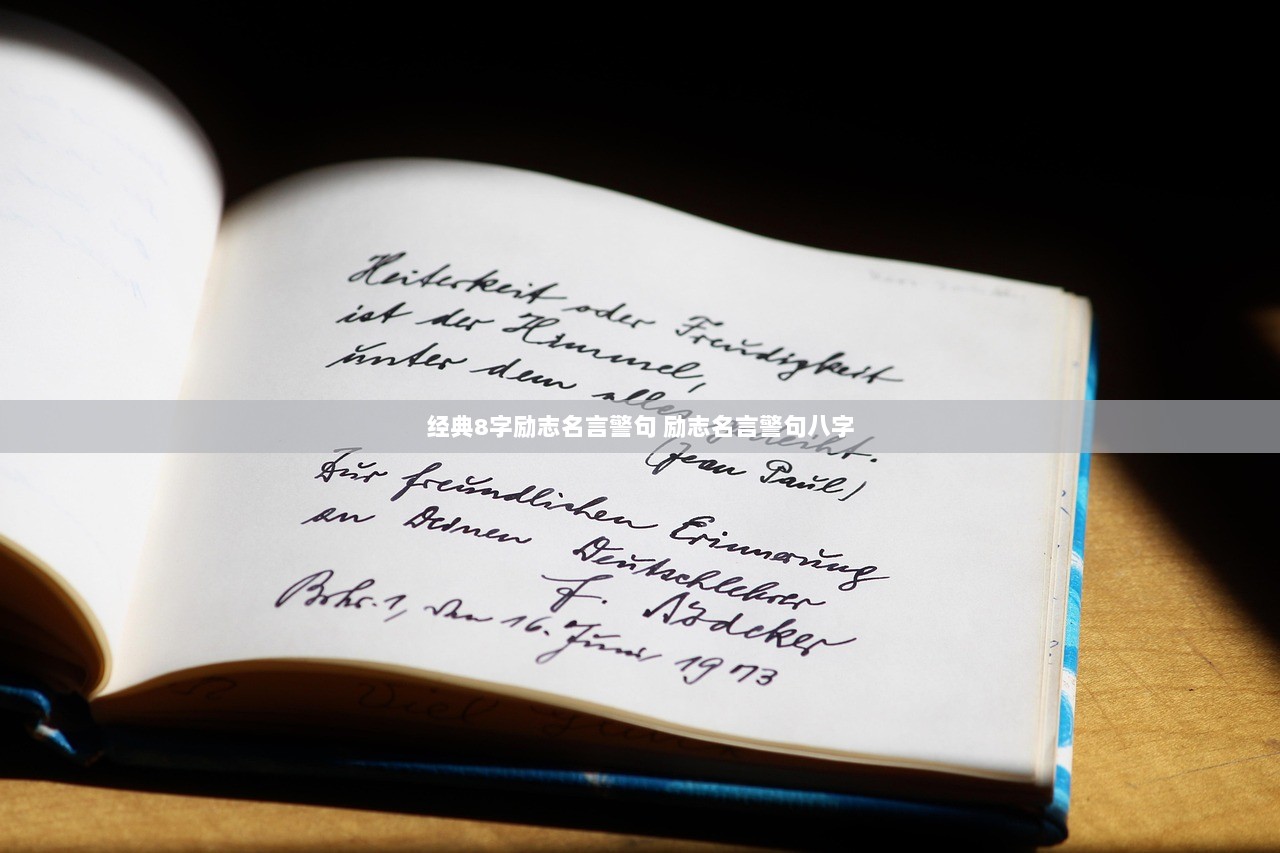 Heiterkeit oder Freudigkeit
ist der Himmel,
unter dem alles gedeiht.
经典8字励志名言警句 励志名言警句八字
(Jean Paul)
Zur freundlichen Erinnerung
an Deinen Deutschlehrer
F.
den 16. Juni 1973